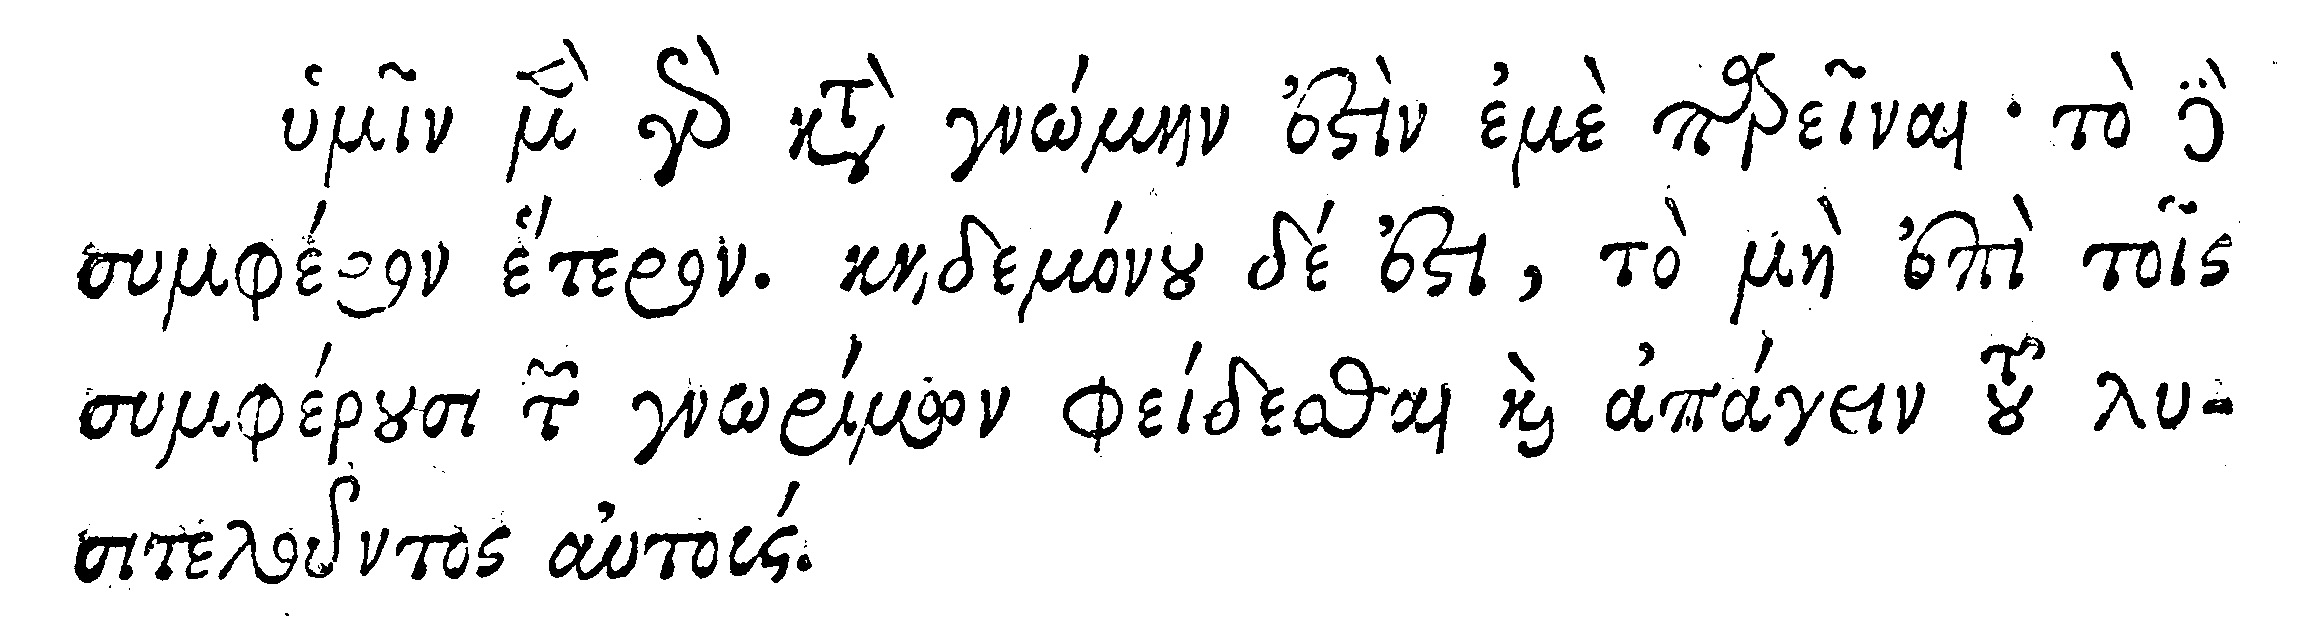 ὑμῖν μὲν γὰρ κατὰ γνώμην ἐστὶν ἐμὲ παρεῖναι· τὸ δὲ
συμφέρον ἕτερον. κηδεμόνου δέ ἐστι, τὸ μὴ ἐπὶ τοῖς
συμφέρουσι τῶν γνωρίμων φείδεσθαι καὶ ἀπάγειν τοῦ λυ-
σιτελοῦντος αὐτοις.